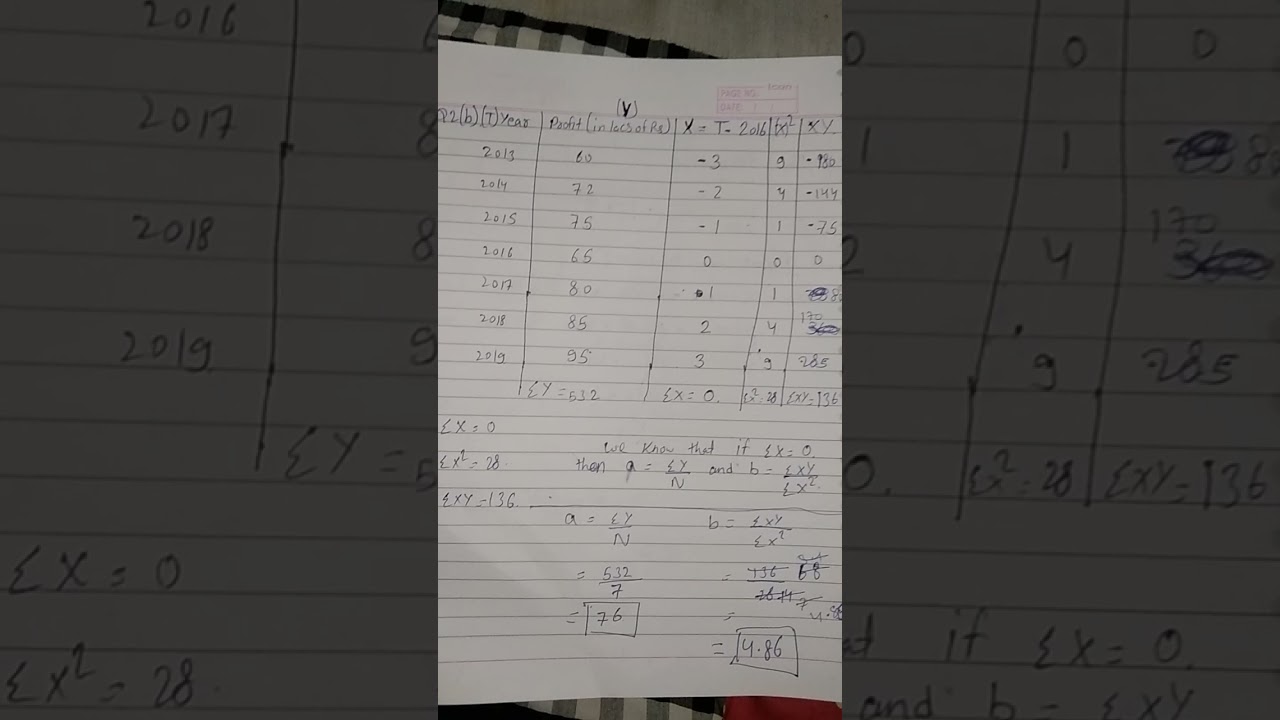 PAGE NO.
DATE: / /
(Y)
Q2(b) (T) Year | Profit (in lacs of Rs) | X = T - 2016 | (x)² | XY
2013 60 -3 9 -180
2014 72 -2 4 -144
2015 75 -1 1 -75
2016 65 0 0 0
2017 80 1 1 8
2018 85 2 4 170
2019 95 3 9 285
ΣY = 532 ΣX = 0. Σx² = 28 ΣXY = 136
ΣX = 0
we know that if ΣX = 0.
Σx² = 28. then a = ΣY/N and b = ΣXY/Σx²
ΣXY = 136.
a = ΣY/N b = ΣXY/Σx²
= 532/7 = 136 68
= 76 = 4.86